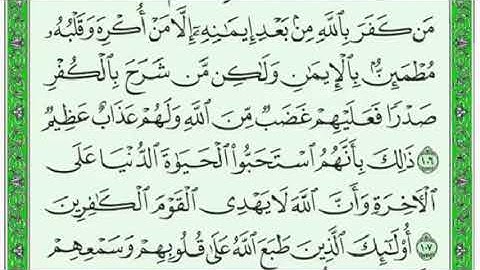 مَن كَفَرَ بِٱللَّهِ مِنۢ بَعْدِ إِيمَـٰنِهِۦٓ إِلَّا مَنْ أُكْرِهَ وَقَلْبُهُۥ
مُطْمَئِنُّۢ بِٱلْإِيمَـٰنِ وَلَـٰكِن مَّن شَرَحَ بِٱلْكُفْرِ
صَدْرًا فَعَلَيْهِمْ غَضَبٌ مِّنَ ٱللَّهِ وَلَهُمْ عَذَابٌ عَظِيمٌ
١٠٦ ذَٰلِكَ بِأَنَّهُمُ ٱسْتَحَبُّوا۟ ٱلْحَيَوٰةَ ٱلدُّنْيَا عَلَى
ٱلْـَٔاخِرَةِ وَأَنَّ ٱللَّهَ لَا يَهْدِى ٱلْقَوْمَ ٱلْكَـٰفِرِينَ
١٠٧ أُو۟لَـٰٓئِكَ ٱلَّذِينَ طَبَعَ ٱللَّهُ عَلَىٰ قُلُوبِهِمْ وَسَمْعِهِمْ